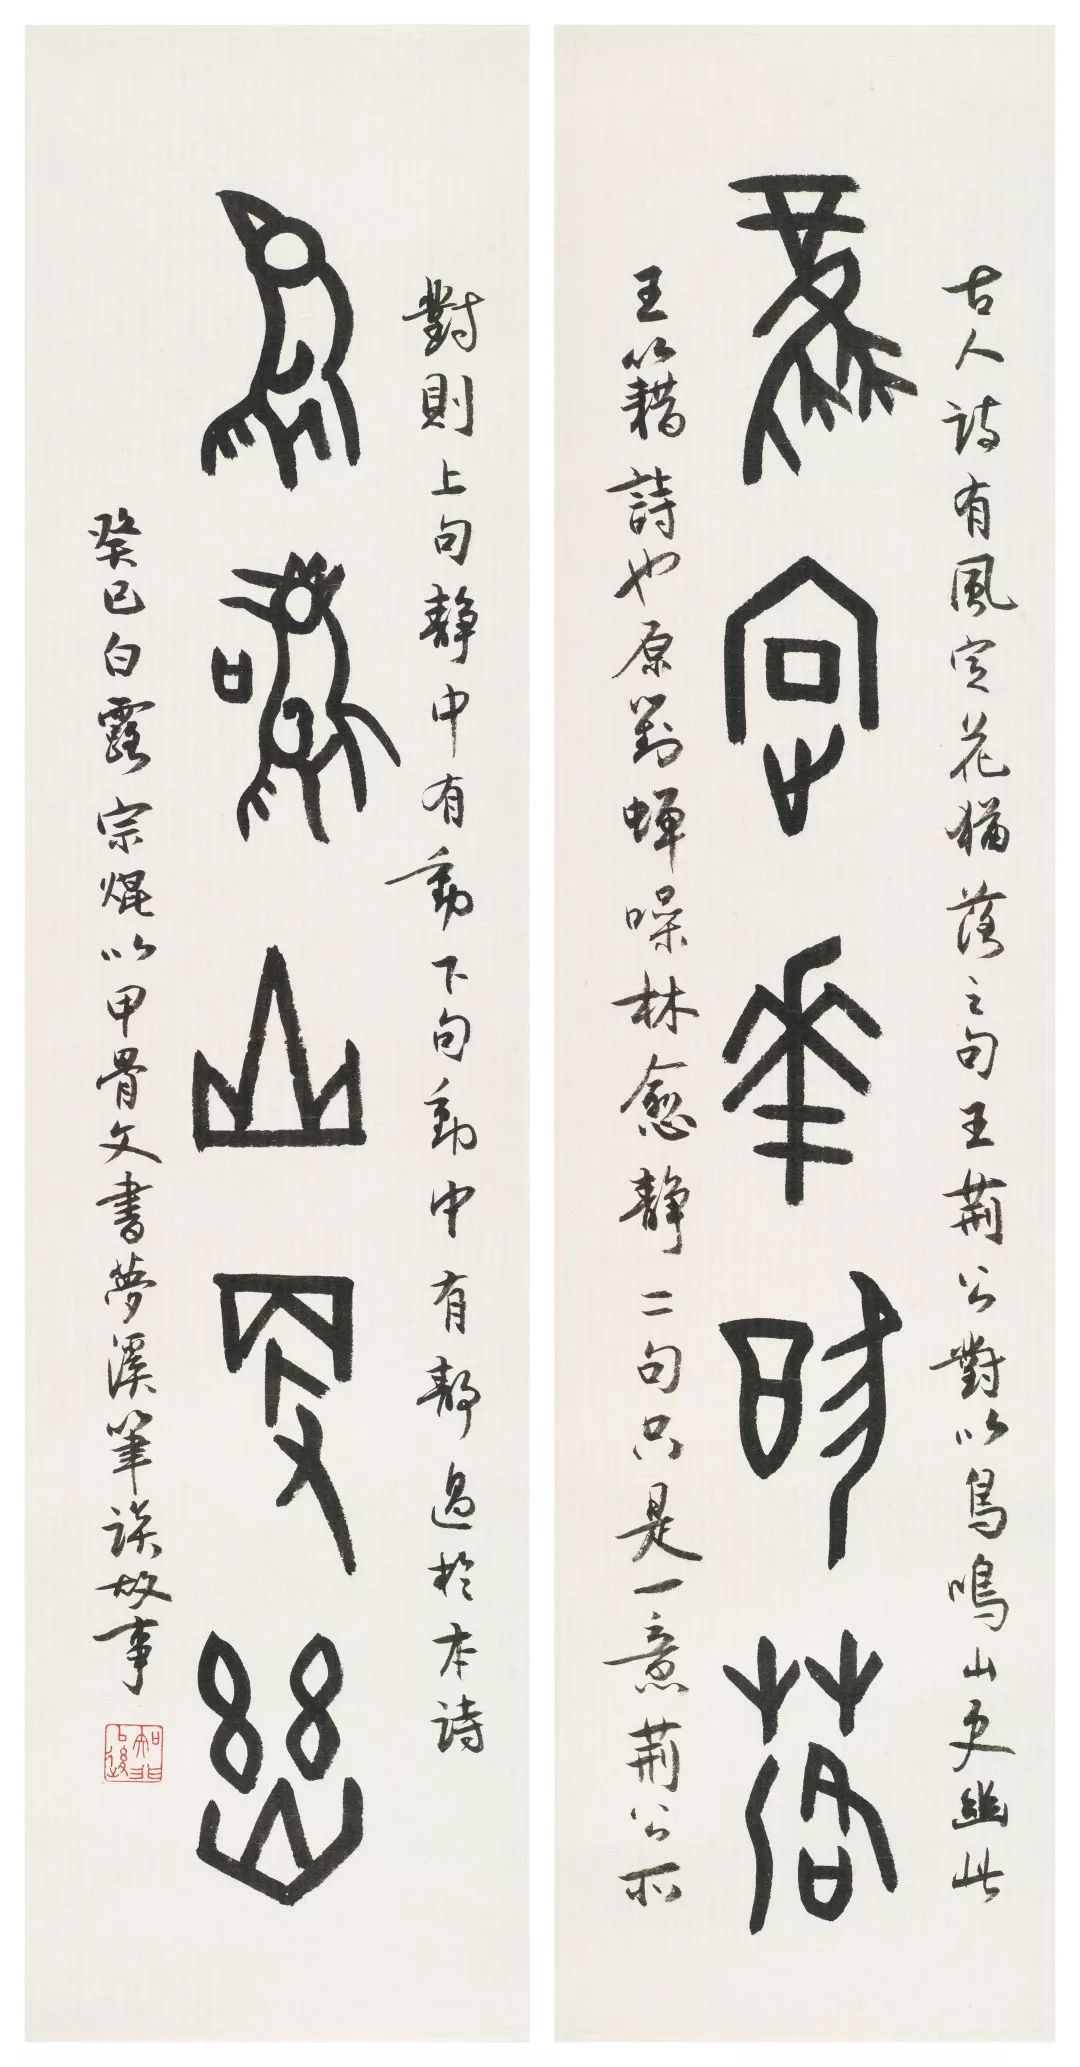 古人詩有風定花猶落之句王荊公對以鳥鳴山更幽此
風定花猶落
王籍詩也原對蟬噪林愈靜二句只是一意荊公所
對則上句靜中有動下句動中有靜過於本詩
鳥鳴山更幽
癸巳白露宗焜以甲骨文書夢溪筆談故事
知非㠯後